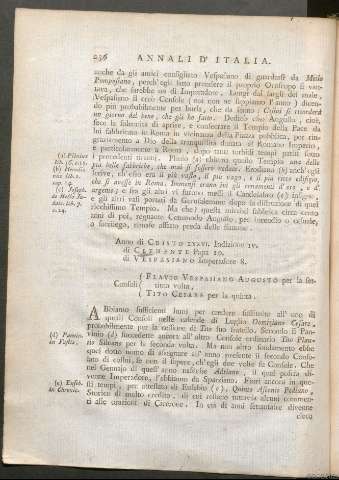 236 ANNALI D'ITALIA.
anche da gli amici consigliato Vespasiano di guardarsi da Metio
Pomposiano, perch'egli fatto prendere il proprio Oroscopo si van-
tava, che sarebbe un dì Imperadore. Lungi dal fargli del male,
Vespasiano il creò Console (noi non ne sappiamo l'anno) dicen-
do più probabilmente per burla, che da senno: Costui si ricorderà
un giorno del bene, che gli ho fatto. Dedicò esso Augusto, cioè,
fece la solennità di aprire, e consecrare il Tempio della Pace da
lui fabbricato in Roma in vicinanza della Piazza pubblica, per rin-
graziamento a Dio della tranquillità donata al Romano Imperio,
e particolarmente a Roma, dopo tanti torbidi tempi patiti sotto
i precedenti tiranni. Plinio (a) chiama quello Tempio una delle
più belle fabbriche, che mai si fossero vedute. Erodiano (b) anch'egli
scrive, ch'esso era il più vasto, il più vago, e il più ricco edificio,
che si avesse in Roma. Immensi erano ivi gli ornamenti d'oro, e d'
argento; e fra gli altri vi furono messi il Candelabro (c) insigne,
e gli altri vasi portati da Gerusalemme dopo la distruzion di quel
ricchissimo Tempio. Ma che? questa mirabil fabbrica circa cento
anni di poi, regnante Commodo Augusto, per incendio o casuale,
o sacrilego, rimase affatto preda delle fiamme.
(a) Plinius
lib. 36. c. 15.
(b) Herodia-
nus lib. 1.
cap. 14.
(c) Joseph.
de Bello Ju-
daic. lib. 7.
c. 24.
Anno di CRISTO LXXVI. Indizione IV.
di CLEMENTE Papa 10.
di VESPASIANO Imperadore 8.
Consoli { FLAVIO VESPASIANO AUGUSTO per la set-
tima volta,
TITO CESARE per la quinta.
ABbiamo sufficienti lumi per credere sustituito all'uno di
questi Consoli nelle calende di Luglio Domiziano Cesare,
probabilmente per la cessione di Tito suo fratello. Secondo il Pan-
vinio (d) succedette ancora all'altro Console ordinario Tito Plau-
zio Silvano per la seconda volta. Ma non altro fondamento ebbe
quel dotto uomo di assegnare all'anno presente il secondo Conso-
lato di costui, se non il sapere, ch'egli due volte fu Console. Che
nel Gennaio di quest'anno nascesse Adriano, il qual poscia di-
venne Imperadore, l'abbiamo da Sparziano. Fiorì ancora in que-
sti tempi, per attestato di Eusebio (e), Quinto Asconio Pediano,
Storico di molto credito, di cui restano tuttavia alcuni commen-
ti alle orazioni di Cicerone. In età di anni settantatre divenne
(d) Panvin.
in Fastis.
(e) Euseb.
in Chronic.
cieco